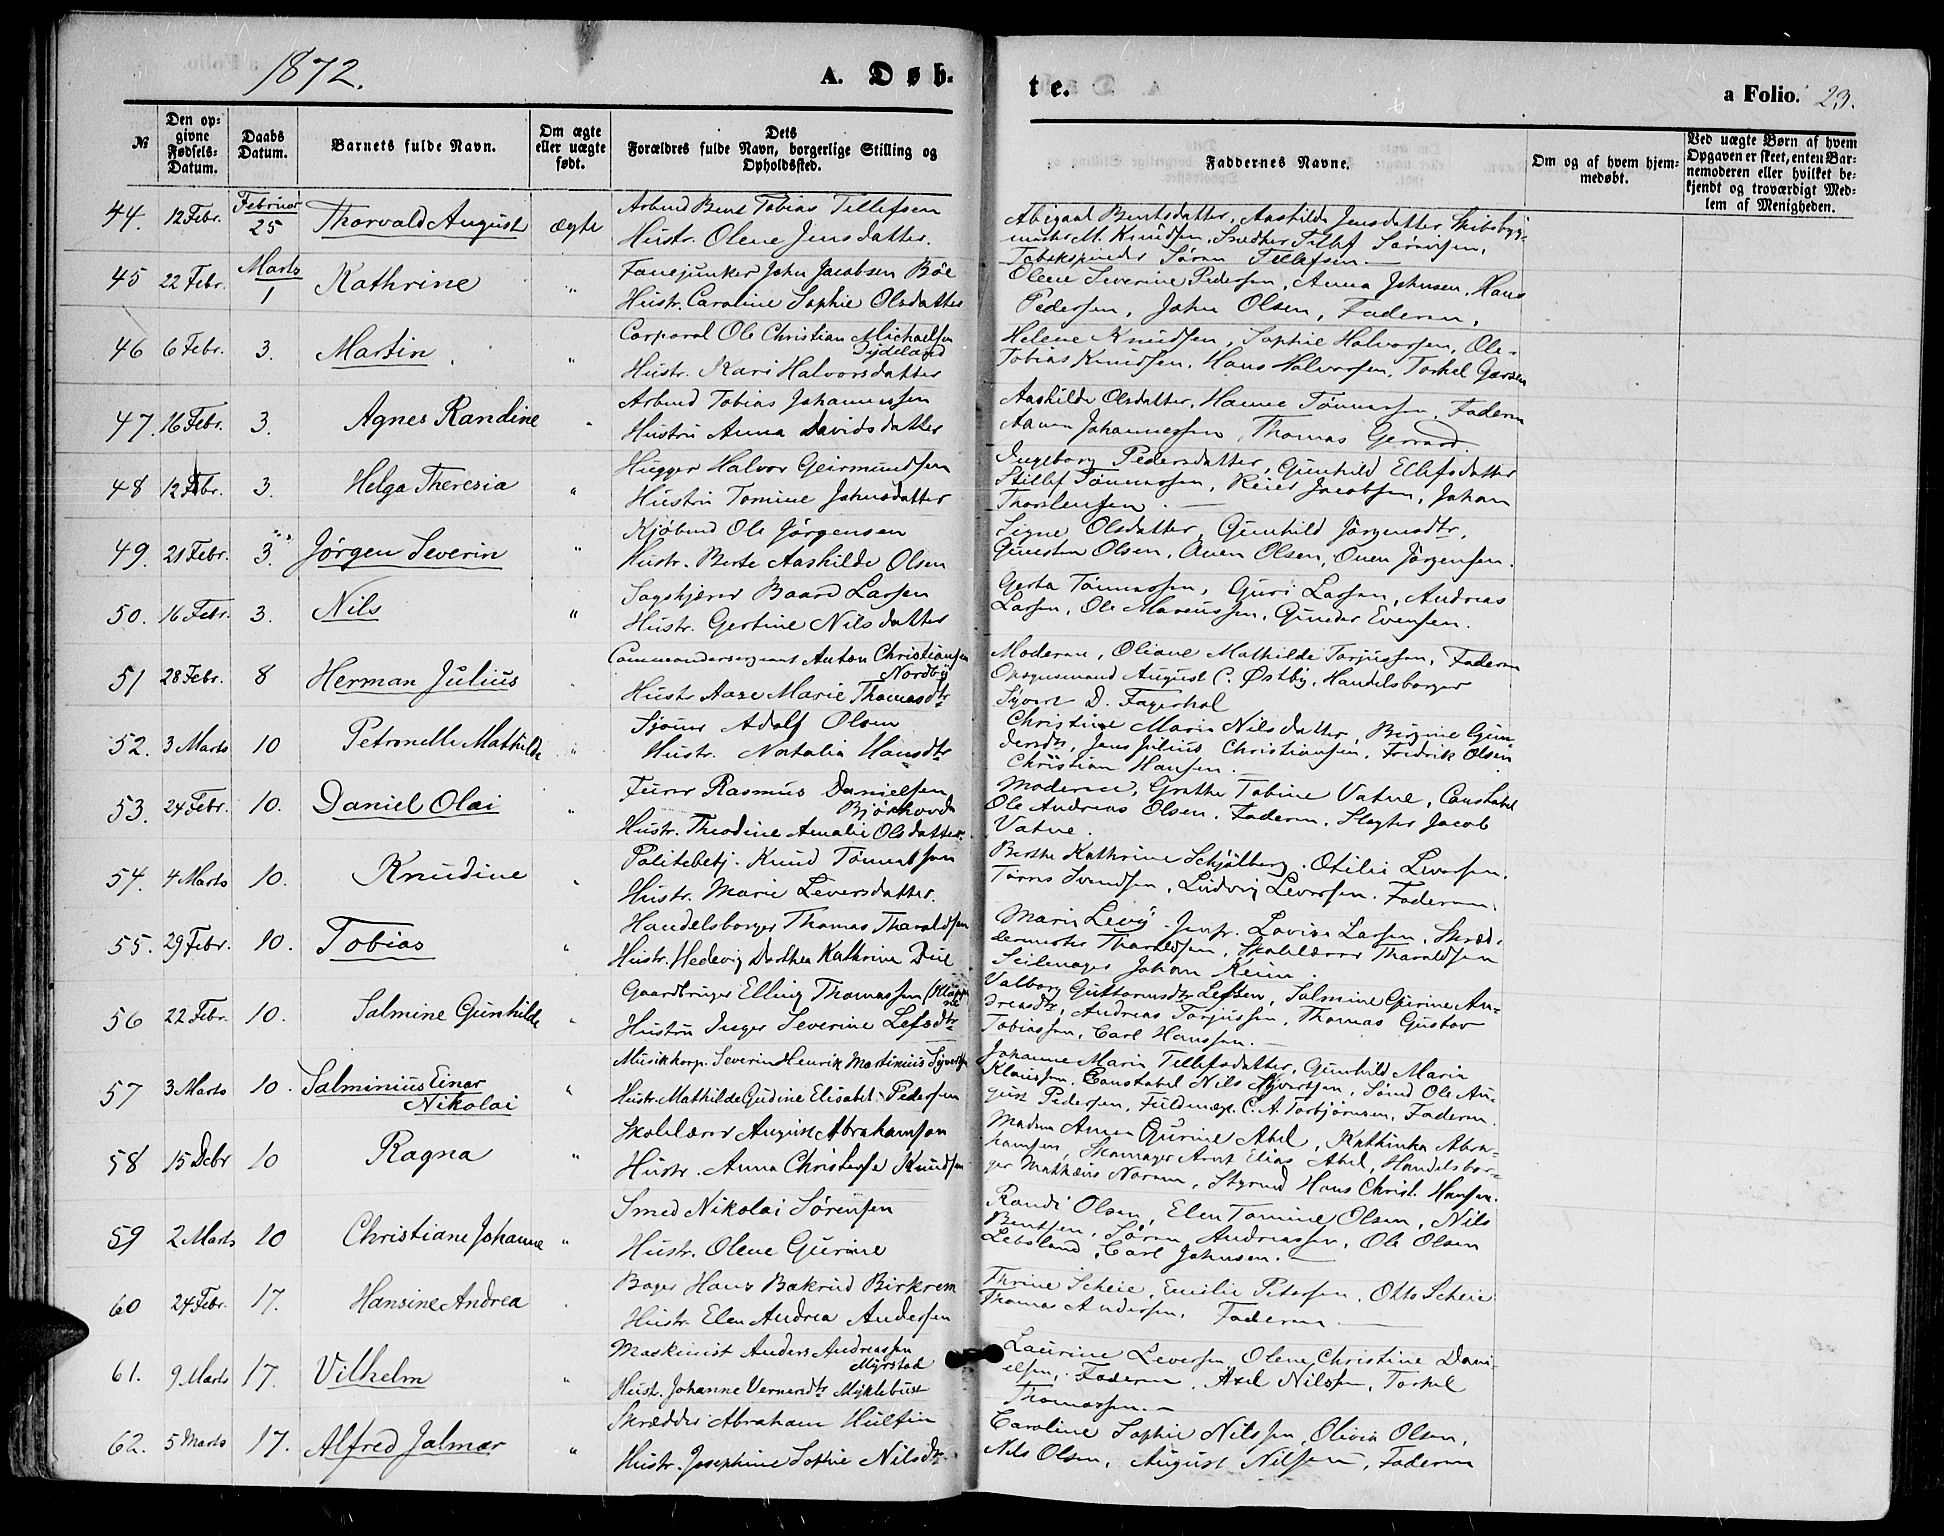 1872.
A. Døb-
te.
a Folio. 23.
№
Den op-
givne
Fødsels-
Datum.
Daabs
Datum.
Barnets fulde Navn.
Om ægte
eller uægte
født.
Dets
Forældres fulde Navn, borgerlige Stilling og
Opholdssted.
Faddernes Navne.
Om og af hvem hjem-
medøbt.
Ved uægte Børn af hvem
Opgaven er skeet, enten Bar-
nemoderen eller hvilket be-
kjendt og troværdigt Med-
lem af Menigheden.
44. 12 Febr. Februar 25 Thorvald August ægte
Arbmd Bent Tobias Tellefsen
Hustr. Olene Jensdatter.
Abigael Bentsdatter, Aashilde Jensdatter, Skibsbyg-
mester M. Knudsen, Snedker Tellef Sørensen,
Tobakspinder Søren Tellefsen.
45 22 Febr. Marts 1 Kathrine "
Fanejunker John Jacobsen Böe
Hustr. Caroline Sophie Olsdatter
Olene Severine Pedersen, Anna Johnsen, Hans
Pedersen, John Olsen, Faderen,
46 6 Febr. 3. Martin "
Corporal Ole Christian Michaelsen
Tydeland
Hustr. Kari Halvorsdatter
Helene Knudsen, Sophie Halvorsen, Ole
Tobias Knudsen, Hans Halvorsen, Torkel
47. 16 Febr. 3. Agnes Randine "
Arbmd Tobias Johannesen
Hustru Anna Davidsdatter
Aashilde Olsdatter, Hanne Tønnessen, Faderen
Aanen Johannessen, Thomas Gerrard
48 12 Febr. 3. Helga Theresia "
Hugger Halvor Geirmundsen
Hustru Tomine Johnsdatter
Ingeborg Pedersdatter, Gunhild Ellefsdatter
Stillef Tønnessen, Reier Jacobsen, Johan
Thorstensen.
49. 21 Febr. 3. Jørgen Severin "
Kjøbmd Ole Jørgensen
Hustr. Berte Aashilde Olsen
Signe Olsdatter, Gunhild Jørgensdtr,
Gunsten Olsen, Aanen Olsen, Ouen Jørgensen.
50. 16 Febr. 3. Nils "
Sagskjærer Baard Larsen
Hustr. Gertine Nilsdatter
Gerta Tønnessen, Guri Larsen, Andreas
Larsen, Ole Mareussen, Gunder Evensen.
51 28 Febr. 8 Herman Julius "
Commandersergeant Anton Christiansen
Nordby
Hustr Aase Marie Thomasdtr
Moderen, Oliane Mathilde Torjussen, Faderen
Opsynsmand August C. Østby, Handelsborger
Syvert D. Fagerhol
52. 3 Marts 10 Petronelle Mathilde "
Sjømd Adolf Olsen
Hustr. Natalia Hansdtr
Christine Marie Nilsdatter, Birgine Gun
dersdtr, Jens Julius Christiansen, Fredrik Olsen
Christian Hansen.
53. 24 Febr. 10. Daniel Olai "
Furer Rasmus Danielsen
Bjørkhovde
Hustr. Theodine Amalie Olsdatter.
Moderen, Grethe Tobine Vatne, Constabel
Ole Andreas Olsen, Faderen, Slagter Jacob
Vatne.
54. 4 Marts 10. Knudine "
Politebetj. Knud Tønnessen
Hustr. Marie Leversdatter.
Berthe Kathrine Schjølberg, Otilie Leversen,
Tørres Svendsen, Ludvig Leversen, Faderen.
55. 29 Febr. 10. Tobias "
Handelsborger Thomas Tharaldsen
Hustr. Hedevig Dorthea Kathrine Due
Maria Levy, Jomfr. Lovise Larsen, Skræd-
dermester Tharaldsen, Skolelærer Tharaldsen
Seilmager Johan Keim.
56 22 Febr. 10. Salmine Gunhilde "
Gaardbruger Elling Thomassen
Hustru Inger Severine Lefsdtr
Valborg Guttormsdtr Lefsen, Salmine Gurine An-
dreasdtr, Andreas Torjussen, Thomas Gustav
Tobiassen, Carl Hanssen.
57 3 Marts 10. Salminius Einar
Nikolai "
Musikkorp. Severin Henrik Martinius Syvertsen
Hustr. Mathilde Gudine Elisabet Pedersen
Johanne Marie Tellefsdatter, Gunhild Marie
Klausen, Constabel Nils Syvertsen, Sømd Ole Au-
gust Pedersen, Fuldmægt. C. A. Torbjørnsen, Faderen.
58 15 Debr 10 Ragna "
Skolelærer August Abrahamsen
Hustr. Anna Christense Knudsen
Madam Anne Gurine Abel, Kathinka Abra-
hamsen, Skomager Arnt Elias Abel, Handelsbor-
ger Mathæus Norem, Styrmd Hans Christ. Hansen.
59 2 Marts 10 Christiane Johanne "
Smed Nikolai Sørensen
Hustr. Olene Gurine
Randi Olsen, Elen Tomine Olsen, Nils
Bentsen, Søren Andreassen, Ole Olsen
Lebsland, Carl Johnsen.
60 24 Febr. 17. Hansine Andrea "
Bager Hans Bakrud Birkrem
Hustr. Elen Andrea Andersen
Thrine Scheie, Emilie Petersen, Otto Scheie
Thomas Andersen, Faderen
61. 9 Marts 17. Vilhelm "
Maskinist Anders Andreassen
Myrstad
Hust. Johanne Vernersdtr Myklebust
Laurine Leversen, Olene Christine Dani-
elsen, Faderen, Axel Nilssen, Torkel
Thomassen.
62. 5 Marts 17. Alfred Jalmar "
Skrædder Abraham Hultin
Hustr. Josephine Sophie Nilsdtr
Caroline Sophie Nilssen, Olivia Olsen,
Nils Olsen, August Nilsen, Faderen